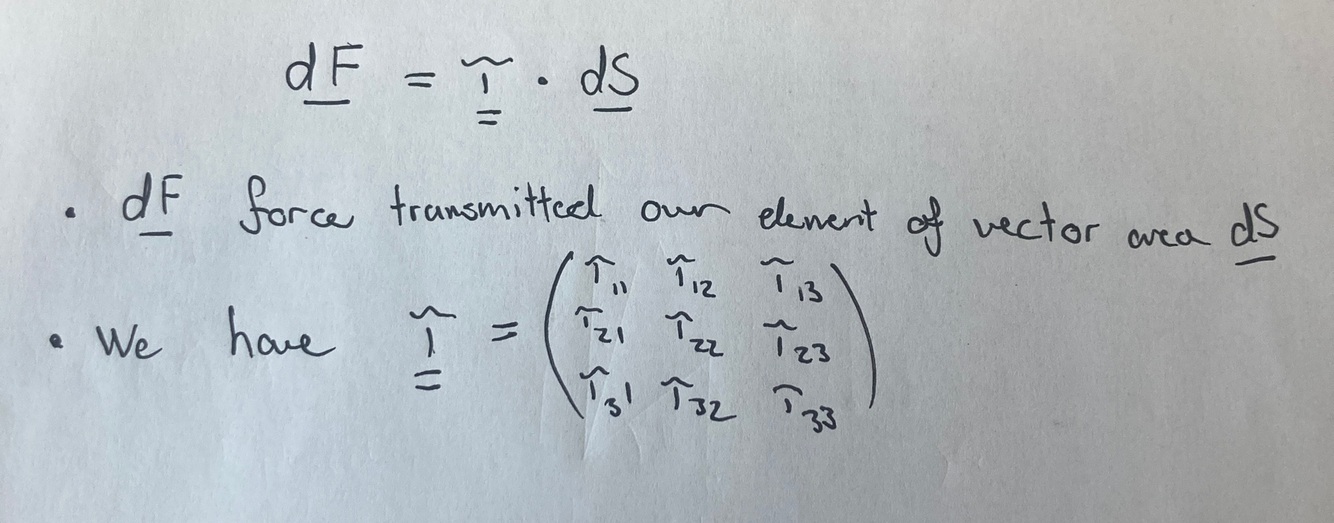 dF = τ · dS
• dF force transmitted over element of vector area dS
• We have τ = ( τ₁₁ τ₁₂ τ₁₃
τ₂₁ τ₂₂ τ₂₃
τ₃₁ τ₃₂ τ₃₃ )